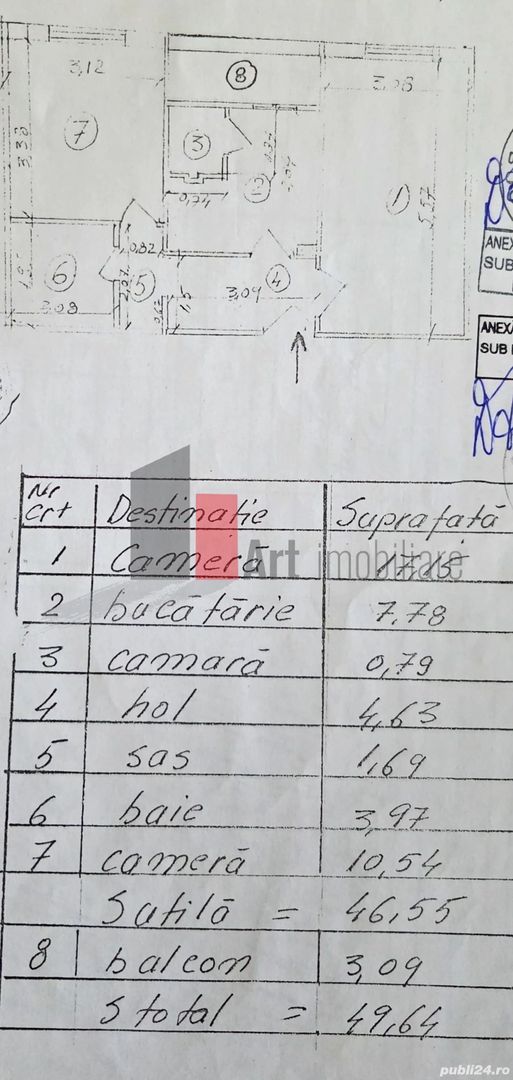 3,12
8
3,08
7
3
3,38
2
0,74
1
5,57
0,82
6
5
4
3,09
3,08
ANEXA
SUB
ANEXA
SUB
Nr crt Destinatie Suprafată
1 Cameră 17,15
2 bucătărie 7,78
3 camară 0,79
4 hol 4,63
5 sas 1,69
6 baie 3,97
7 cameră 10,54
Sutilă = 46,55
8 balcon 3,09
S total = 49,64
Art imobiliare
publi24.ro